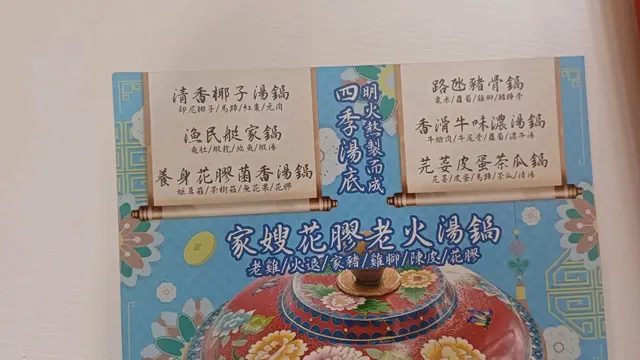 清香椰子湯鍋
印尼椰子/馬蹄/紅棗/元肉
漁民艇家鍋
魚肚/蝦乾/地魚/蝦湯
養身花膠菌香湯鍋
姬茸菇/茶樹菇/無花果/花膠
明火熬製而成
四季湯底
路氹豬骨鍋
粟米/蘿蔔/雞腳/豬骨
香滑牛味濃湯鍋
牛脸肉/牛尾骨/蘿蔔/濃牛湯
芫荽皮蛋茶瓜鍋
芫荽/皮蛋/馬蹄/茶瓜/清湯
家嫂花膠老火湯鍋
老雞/火退/家豬/雞腳/陳皮/花膠